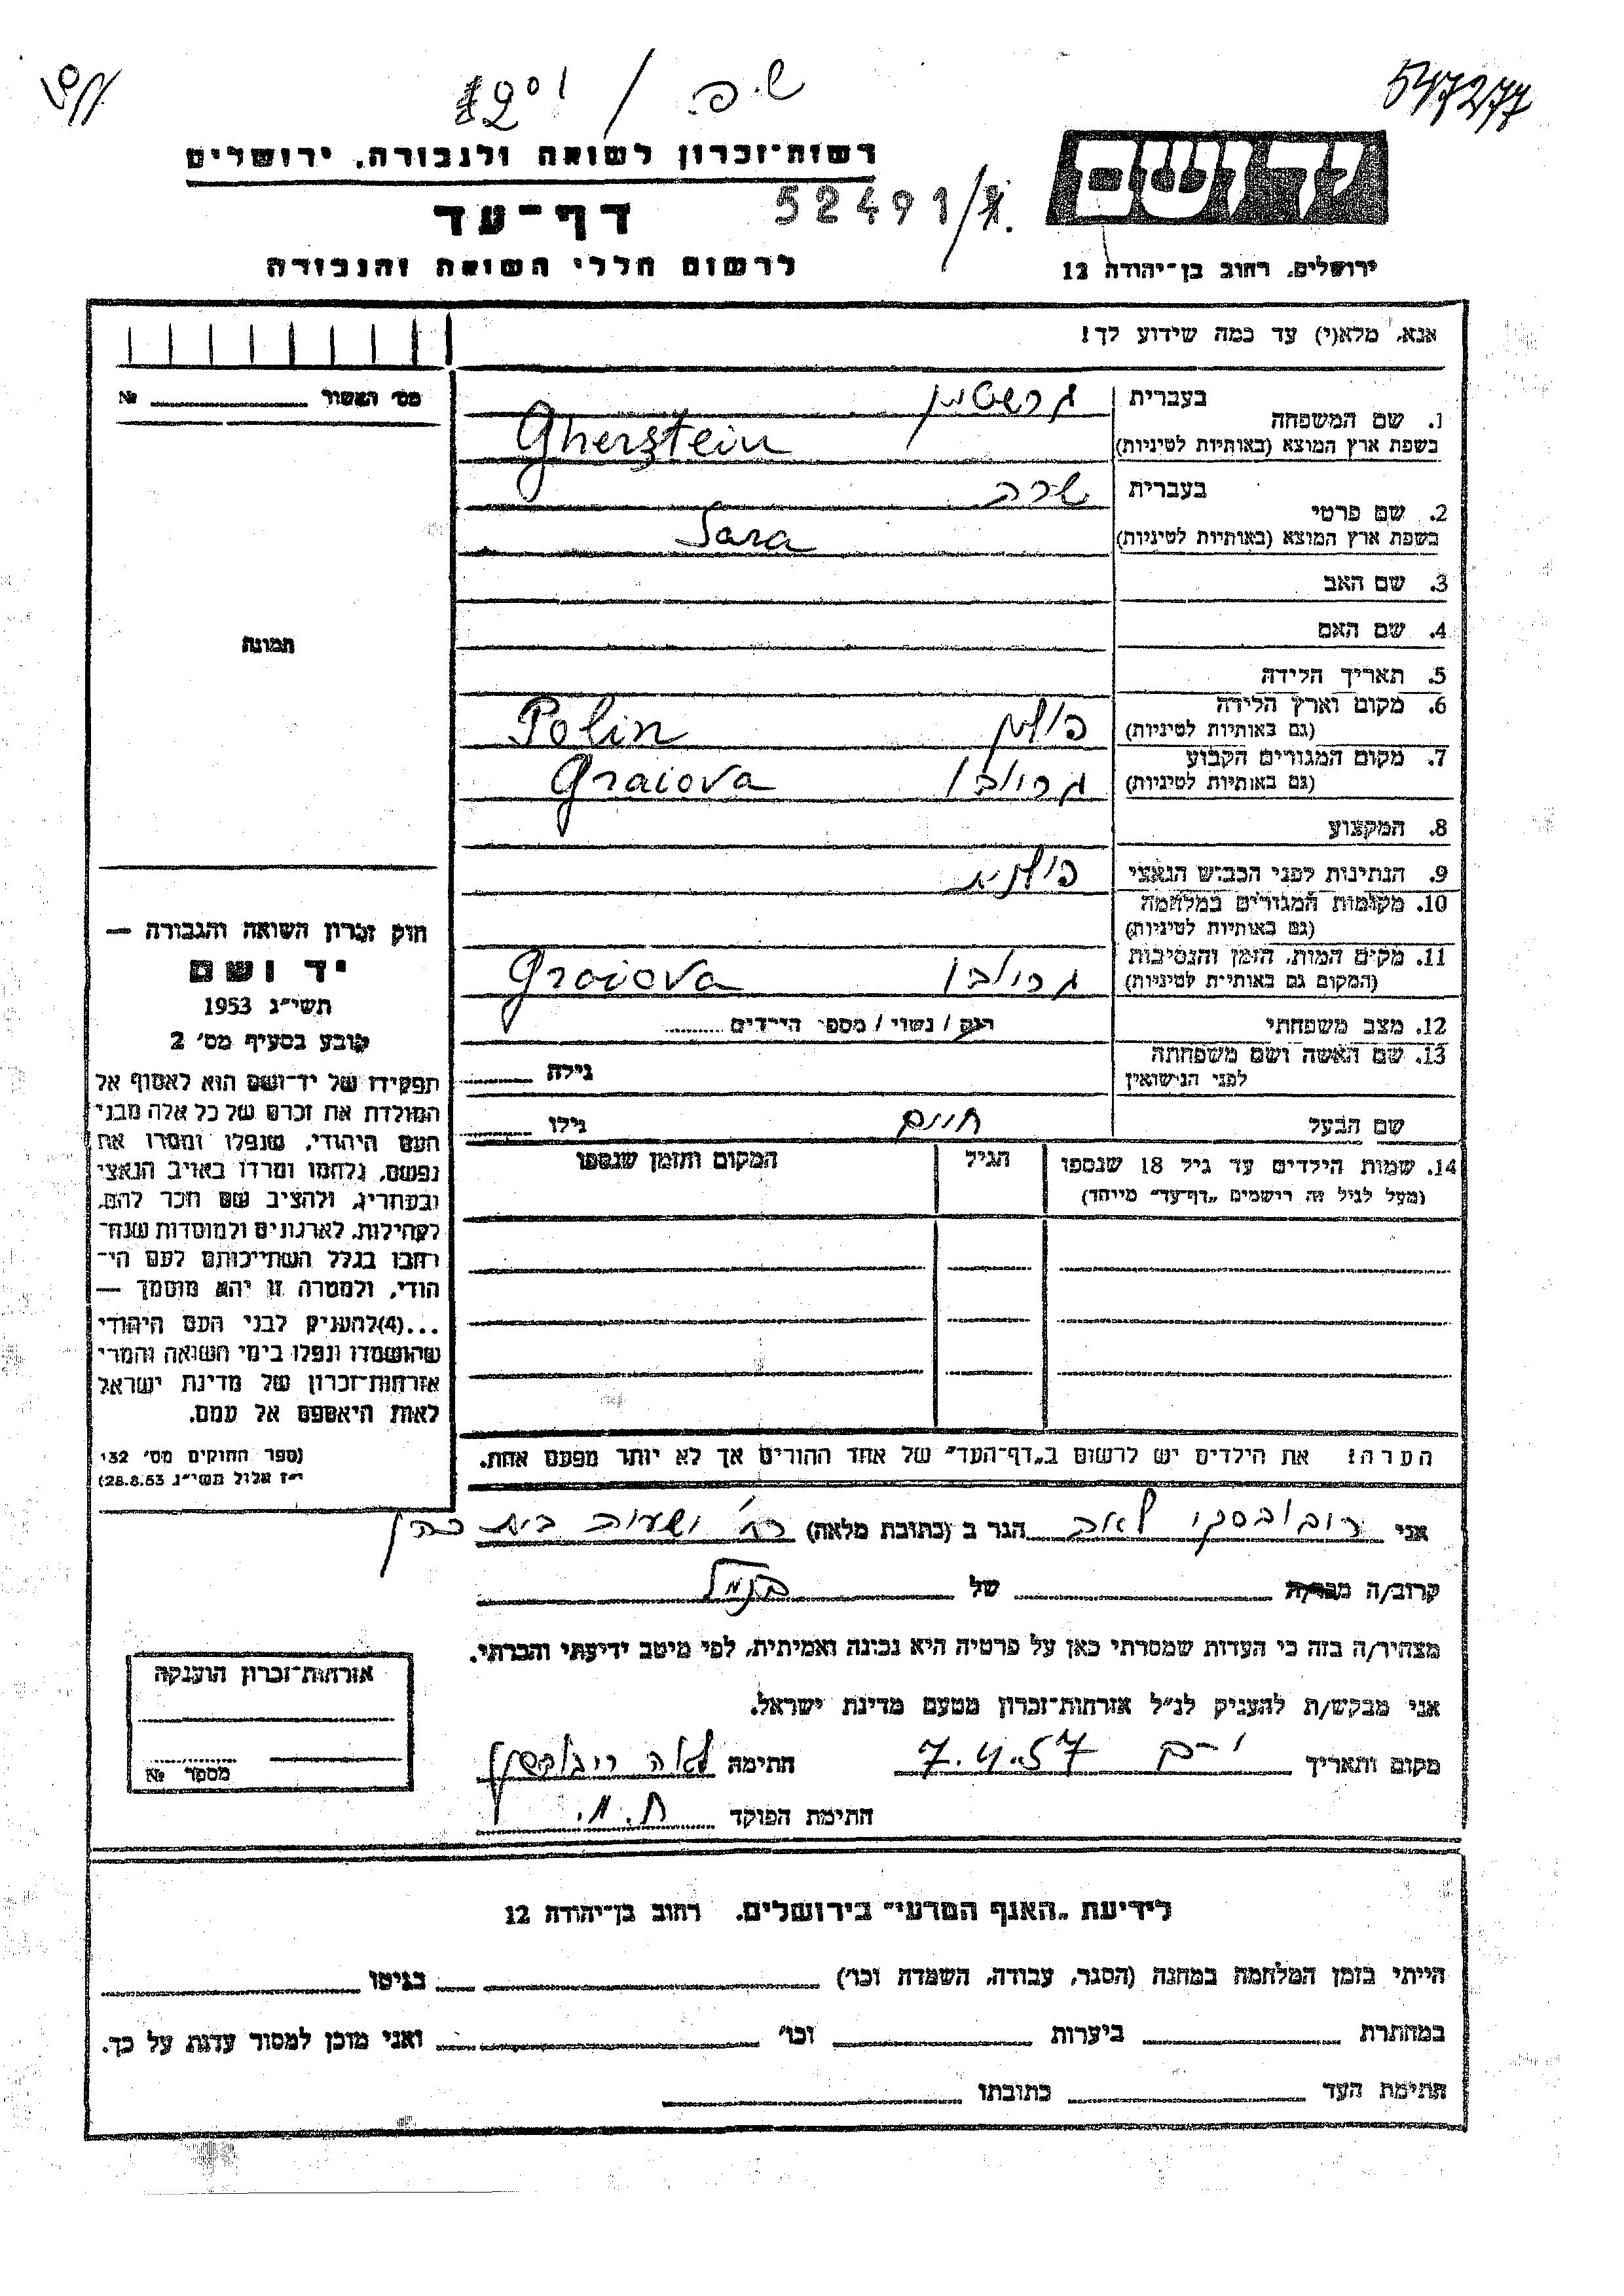 547277
ש.פ. / 1201
יד ושם
רשות־זכרון לשואה ולגבורה, ירושלים
52491/
דף־עד
ירושלים, רחוב בן־יהודה 12
לרשום חללי השואה והגבורה
אנא, מלא(י) עד כמה שידוע לך!
מס׳ האשור № 
1. שם המשפחה
בעברית גרשטיין
בשפת ארץ המוצא (באותיות לטיניות) Gherștein
2. שם פרטי
בעברית שרה
בשפת ארץ המוצא (באותיות לטיניות) Sara
3. שם האב
4. שם האם
תמונה
5. תאריך הלידה
6. מקום וארץ הלידה
(גם באותיות לטיניות) פולין Polin
7. מקום המגורים הקבוע
(גם באותיות לטיניות) Graiova
8. המקצוע
9. הנתינות לפני הכבוש הנאצי
10. מקומות המגורים במלחמה
(גם באותיות לטיניות)
11. מקום המות, הזמן והנסיבות
(המקום גם באותיות לטיניות) Graiova
12. מצב משפחתי רוק / נשוי / מספר הילדים
13. שם האשה ושם משפחתה
לפני הנישואין גילה
שם הבעל חיים גילו
14. שמות הילדים עד גיל 18 שנספו
(מעל לגיל זה רישמים „דף־עד״ מייחד)
הגיל
המקום והזמן שנספו
חוק זכרון השואה והגבורה —
יד ושם
תשי״ג 1953
קובע בסעיף מס׳ 2
תפקידו של יד־ושם הוא לאסוף אל
המולדת את זכרם של כל אלה מבני
העם היהודי, שנפלו ומסרו את
נפשם, נלחמו ומרדו באויב הנאצי
ובעוזריו, ולהציב שם וזכר להם,
לקהילות, לארגונים ולמוסדות שנח־
רבו בגלל השתייכותם לעם הי־
הודי, ולמטרה זו יהא מוסמך —
...(4)להעניק לבני העם היהודי
שהושמדו ונפלו בימי השואה והמרי
אזרחות־זכרון של מדינת ישראל
לאות היאספם אל עמם.
(ספר החוקים מס׳ 132
י״ז אלול תשי״ג 28.8.53)
הערה! את הילדים יש לרשום ב„דף־העד״ של אחד ההורים אך לא יותר מפעם אחת.
אני לאה הגר ב (כתובת מלאה)
קרוב/ה מכר/ת של
מצהיר/ה בזה כי העדות שמסרתי כאן על פרטיה היא נכונה ואמיתית, לפי מיטב ידיעתי והכרתי.
אני מבקש/ת להעניק לנ״ל אזרחות־זכרון מטעם מדינת ישראל.
מקום ותאריך י־ם 7.4.57 חתימה לאה
חתימת הפוקד
אזרחות־זכרון הוענקה
מספר №
לידיעת „האגף המדעי״ בירושלים, רחוב בן־יהודה 12
הייתי בזמן המלחמה במחנה (הסגר, עבודה, השמדה וכו׳) בגיטו
במחתרת ביערות וכו׳ ואני מוכן למסור עדות על כך.
חתימת העד כתובתו